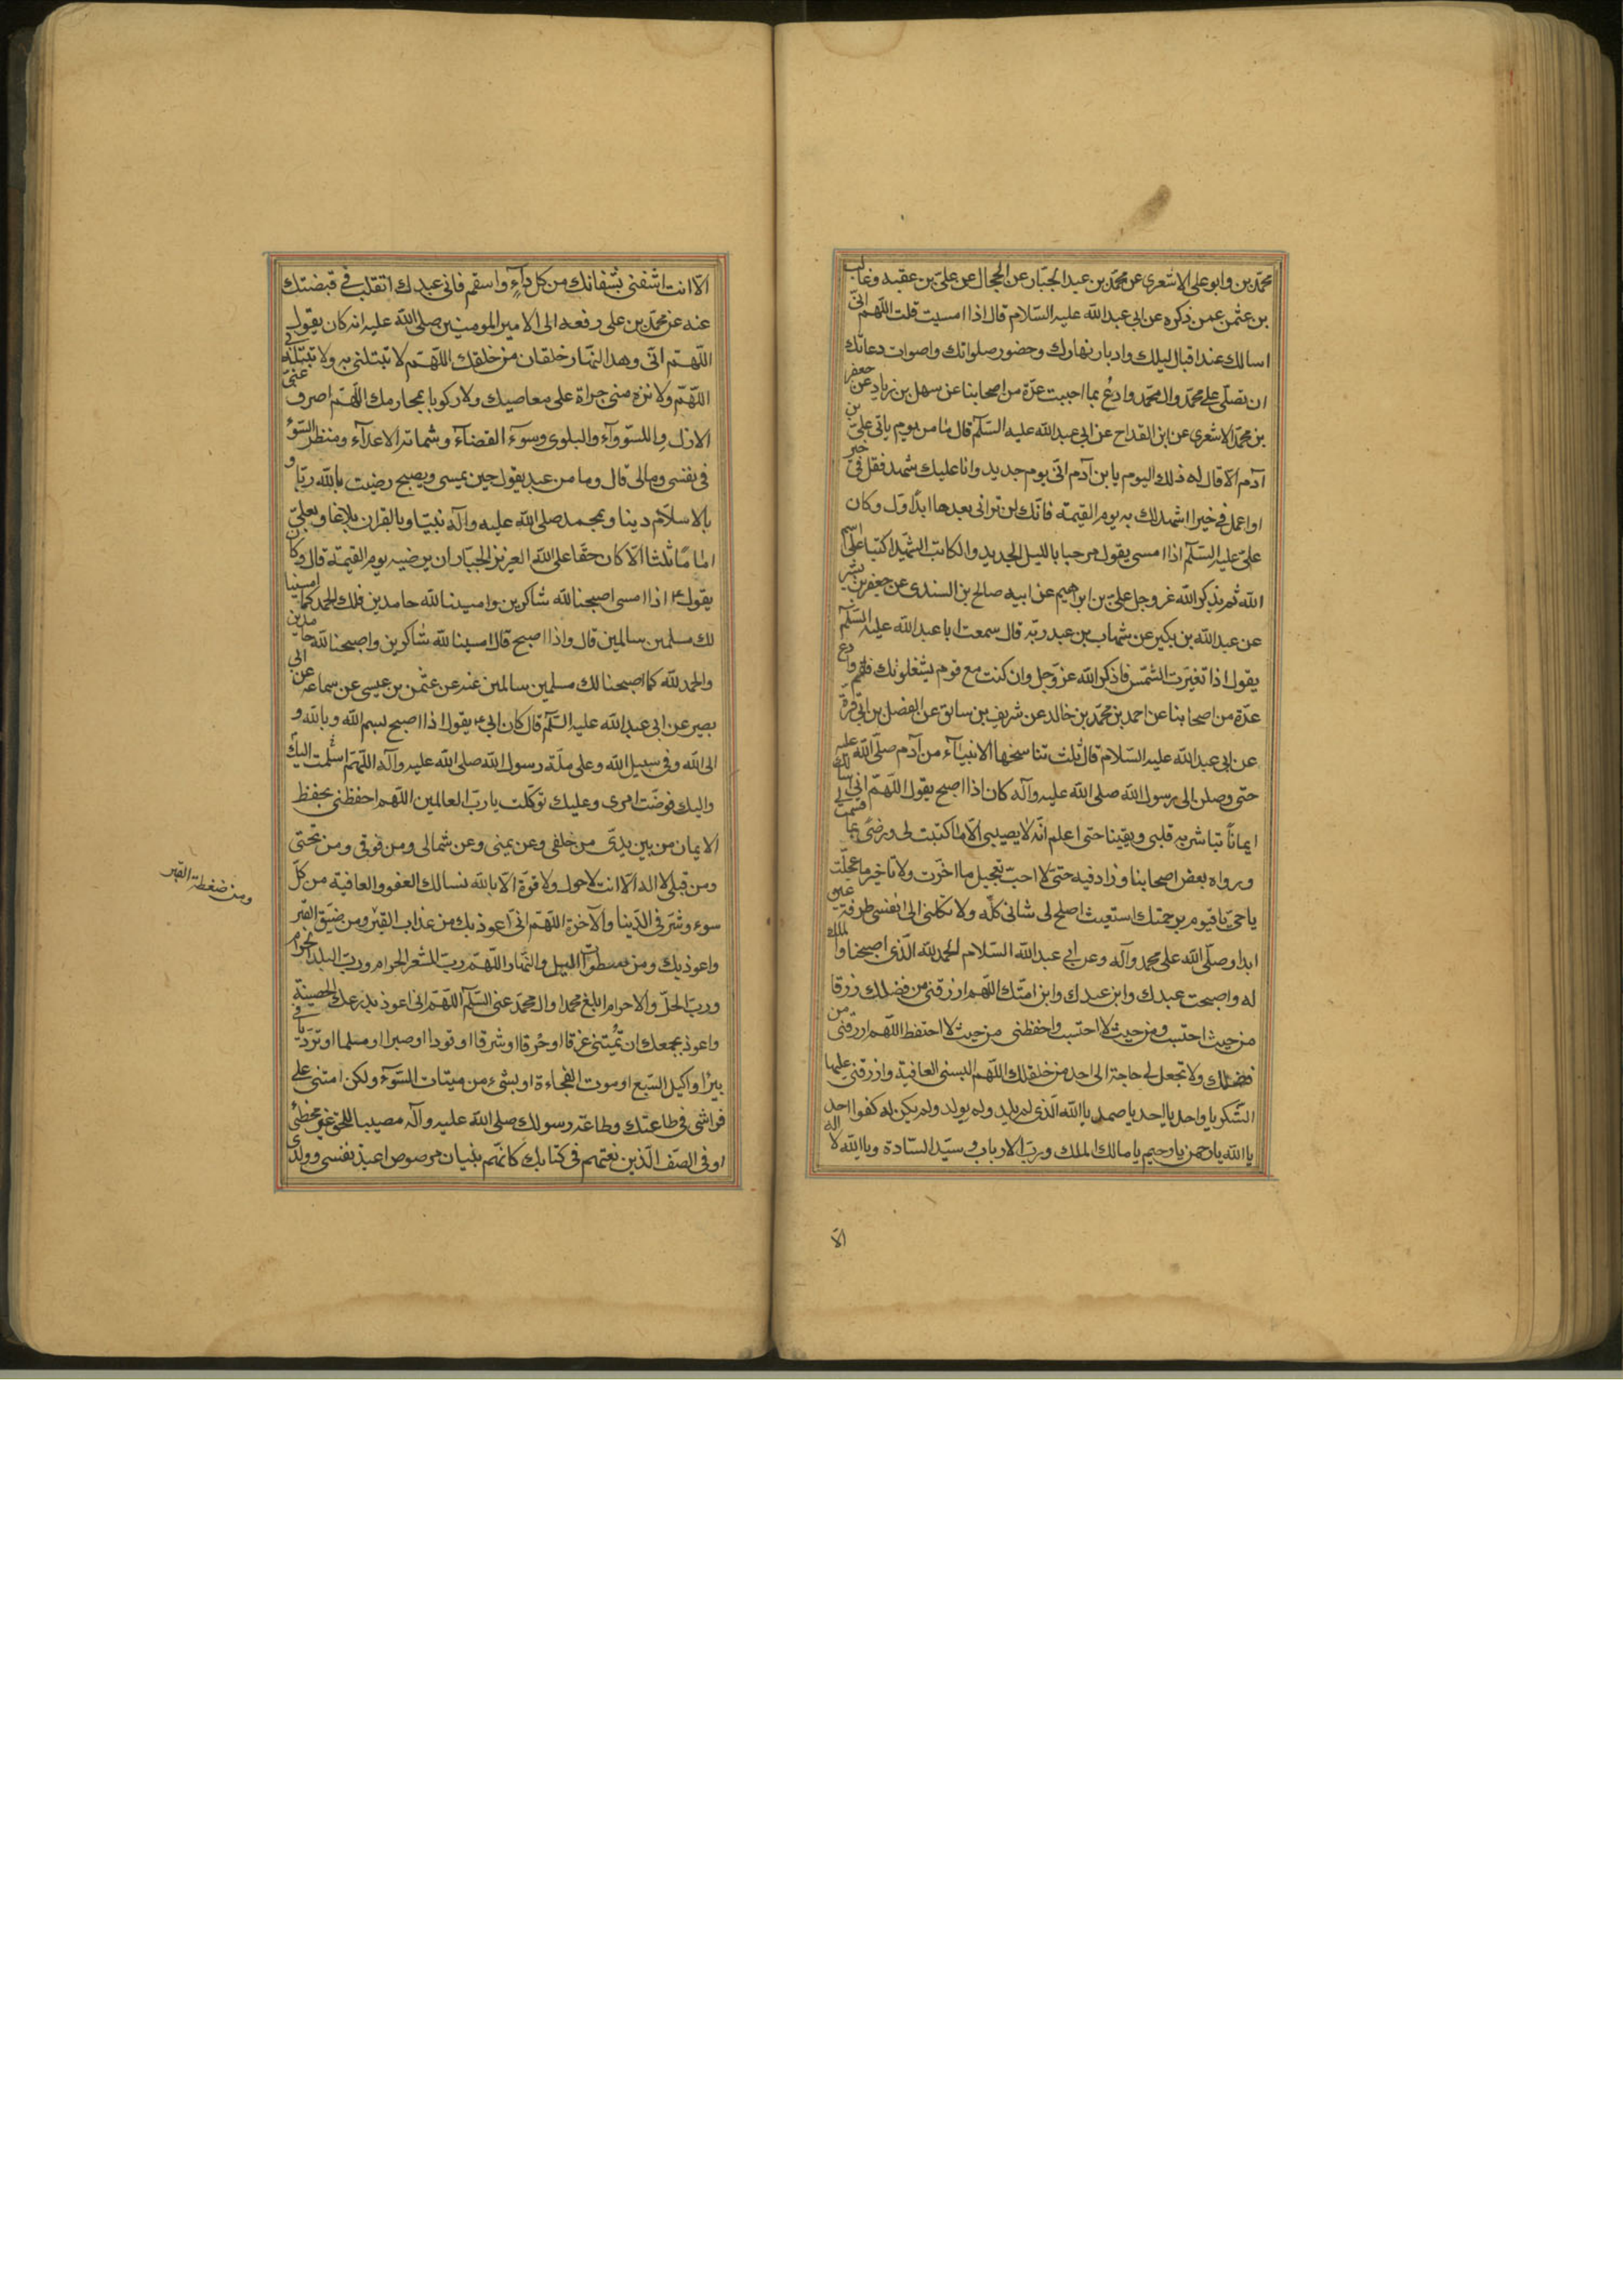 محمد بن وابو على الاشعرى عن محمد بن عبد الجبار عن الحجال عن على بن عقبه وغالب
بن عثمن عمن ذكره عن ابى عبد الله عليه السلام قال اذا امسيت قلت اللهم انى
اسالك عند اقبال ليلك وادبار نهارك وحضور صلواتك واصوات دعاتك
ان تصلى على محمد وال محمد وادع بما احببت عدة من اصحابنا عن سهل بن زياد عن جعفر
بن محمد الاشعرى عن ابن القداح عن ابى عبد الله عليه السلم قال ما من يوم ياتى على بن
آدم الا قال له ذلك اليوم يا بن آدم انى يوم جديد وانا عليك شهيد فقل فى خير
او اعمل فى خيرا اشهد لك به يوم القيمة فانك لن ترانى بعدها ابدا وكان
على عليه السلم اذا امسى يقول مرحبا بالليل الجديد والكاتب الشهيد اكتبا على اسم
الله ثم يذكر الله عز وجل على بن ابراهيم عن ابيه صالح بن السندى عن جعفر بن بشير
عن عبد الله بن بكير عن شهاب بن عبد ربه قال سمعت ابا عبد الله عليه السلم
يقول اذا تغيرت الشمس فاذكر الله عز وجل وان كنت مع قوم يشغلونك فقم وادع
عدة من اصحابنا عن احمد بن محمد بن خالد عن شريف بن سابق عن الفضل بن ابى قرة
عن ابى عبد الله عليه السلام قال ثلث تناسخها الانبياء من آدم صلى الله عليه
حتى وصلن الى رسول الله صلى الله عليه وآله كان اذا اصبح يقول اللهم انى اسالك
ايمانا تباشر به قلبى ويقينا حتى اعلم انه لا يصيبى الا ما كتبت لى ورضى بما قسمت لى
ورواه بعض اصحابنا وزاد فيه حتى لا احب تعجيل ما اخرت ولا تاخير ما عجلت
يا حى يا قيوم برحمتك استغيث اصلح لى شانى كله ولا تكلنى الى نفسى طرفة عين
ابدا وصلى الله على محمد وآله وعن ابى عبد الله السلام الحمد لله الذى اصبحنا والملك
له واصبحت عبدك وابن عبدك وابن امتك اللهم ارزقنى من فضلك رزقا
من حيث احتسب ومن حيث لا احتسب واحفظنى من حيث لا احتفظ اللهم ارزقنى من
فضلك ولا تجعل لى حاجة الى احد من خلقك اللهم البسنى العافية وارزقنى عليها
الشكر يا واحد يا احد يا صمد يا الله الذى لم يلد ولم يولد ولم يكن له كفوا احد
يا الله يا رحمن يا رحيم يا مالك الملك ورب الارباب وسيد السادة ويا الله لا اله
الا
الا انت اشفنى بشفائك من كل داء واسقم فانى عبدك اتقلب فى قبضتك
عنه عن محمد بن على رفعه الى الامير المومنين صلى الله عليه انه كان يقول
اللهم انى وهذا النهار خلقان من خلقك اللهم لا تبتلنى به ولا تبتله بى
اللهم ولا تره منى جراة على معاصيك ولا ركوبا بمحارمك اللهم اصرف عنى
الازل واللسوواء والبلوى وسوء القضاء وشماتة الاعداء ومنظر السوء
فى نفسى ومالى قال وما من عبد يقول حين يمسى ويصبح رضيت بالله ربا و
بالاسلام دينا وبمحمد صلى الله عليه وآله نبيا وبالقران بلاغا وبعلى
اماما ثلثا الا كان حقا على الله العزيز الجبار ان يرضيه يوم القيمة قال وكان
يقول ع اذا امسى اصبحنا لله شاكرين وامسينا لله حامدين فلك الحمد كما امسينا
لك مسلمين سالمين قال واذا اصبح قال امسينا لله شاكرين واصبحنا لله حامدين
والحمد لله كما اصبحنا لك مسلمين سالمين عنه عن عثمن بن عيسى عن سماعه عن ابى
بصير عن ابى عبد الله عليه السلم قال كان ابى ع يقول اذا اصبح بسم الله وبالله و
الى الله وفى سبيل الله وعلى ملة رسول الله صلى الله عليه وآله اللهم اسلمت اليك
واليك فوضت امرى وعليك توكلت يا رب العالمين اللهم احفظنى بحفظ
الايمان من بين يدى من خلفى وعن يمنى وعن شمالى ومن فوقى ومن تحتى
ومن قبلى لا اله الا انت لا حول ولا قوة الا بالله نسالك العفو والعافية من كل
سوء وشر فى الدنيا والآخرة اللهم انى اعوذ بك من عذاب القبر ومن ضيق القبر
ومن ضغطة القبر
واعوذ بك ومن سطوات الليل والنهار اللهم رب المشعر الحرام ورب البلد الحرام
ورب الحل والاحرام ابلغ محمدا وال محمد عنى السلم اللهم انى اعوذ بدرعك الحصينة
واعوذ بجمعك ان تميتنى غرقا او حرقا او شرقا او قودا او صبرا او مسلما او تردیا فى
بير او اكيل السبع او موت الفجاءة او بشىء من ميتات السوء ولكن امتنى على
فراشى فى طاعتك وطاعة رسولك صلى الله عليه وآله مصيبا للحق غير مخطئ
او فى الصف الذين نعتهم فى كتابك كانهم بنيان مرصوص اعيذ نفسى وولدى